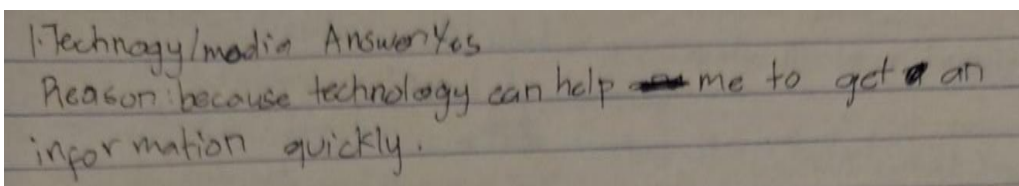 1. Technagy/media Answer: Yes
Reason: because technology can help me to get an
information quickly.